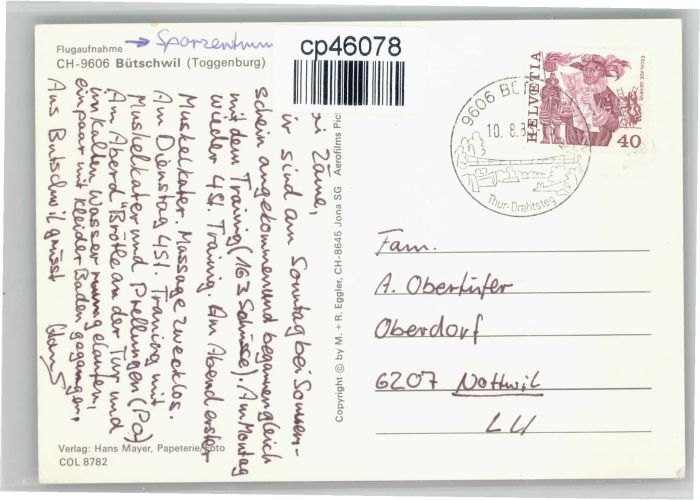 Flugaufnahme → Sporzentrum
CH-9606 Bütschwil (Toggenburg)
cp46078
HELVETIA
ESCALADE GENÈVE
40
9606 BÜ
10. 8. 8
Thur-Drahtsteg
Zäme,
ir sind am Sonntag bei Sonnen-
schein angekommen und begannen gleich
mit dem Training (163 Schüsse). Am Montag
wieder 4 St. Training. Am Abend erster
Muskelkater. Massage zwecklos.
Am Dienstag 4 St. Training mit
Muskelkater und Prellungen (Po)
Am Abend "Brötle" an der Tur und
im kalten Wasser rumgelaufen,
ein paar mit Kleider Baden gegangen.
Aus Bütschwil grüsst
Copyright © by M. + R. Eggler, CH-8645 Jona SG Aerofilms Pic
Fam.
A. Obertüfer
Oberdorf
6207 Nottwil
LU
Verlag: Hans Mayer, Papeterie/Foto
COL 8782